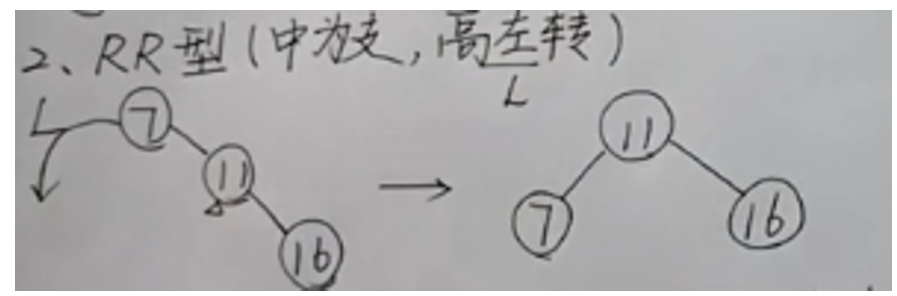 2、RR型(中为支,高左转)
L
L 7 11
11
7 16
16